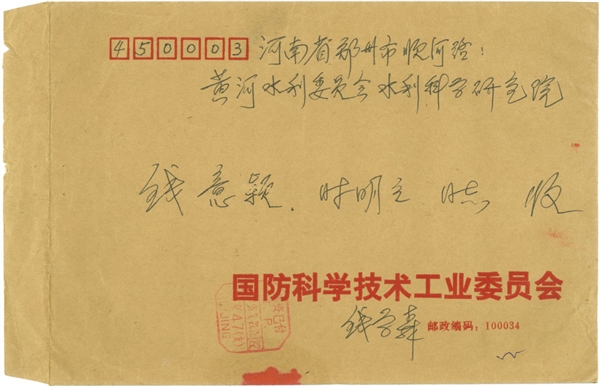 450003 河南省郑州市顺河路:
黄河水利委员会水利科学研究院
钱意颖.时明立 同志 收
国防科学技术工业委员会
钱学森 邮政编码:100034